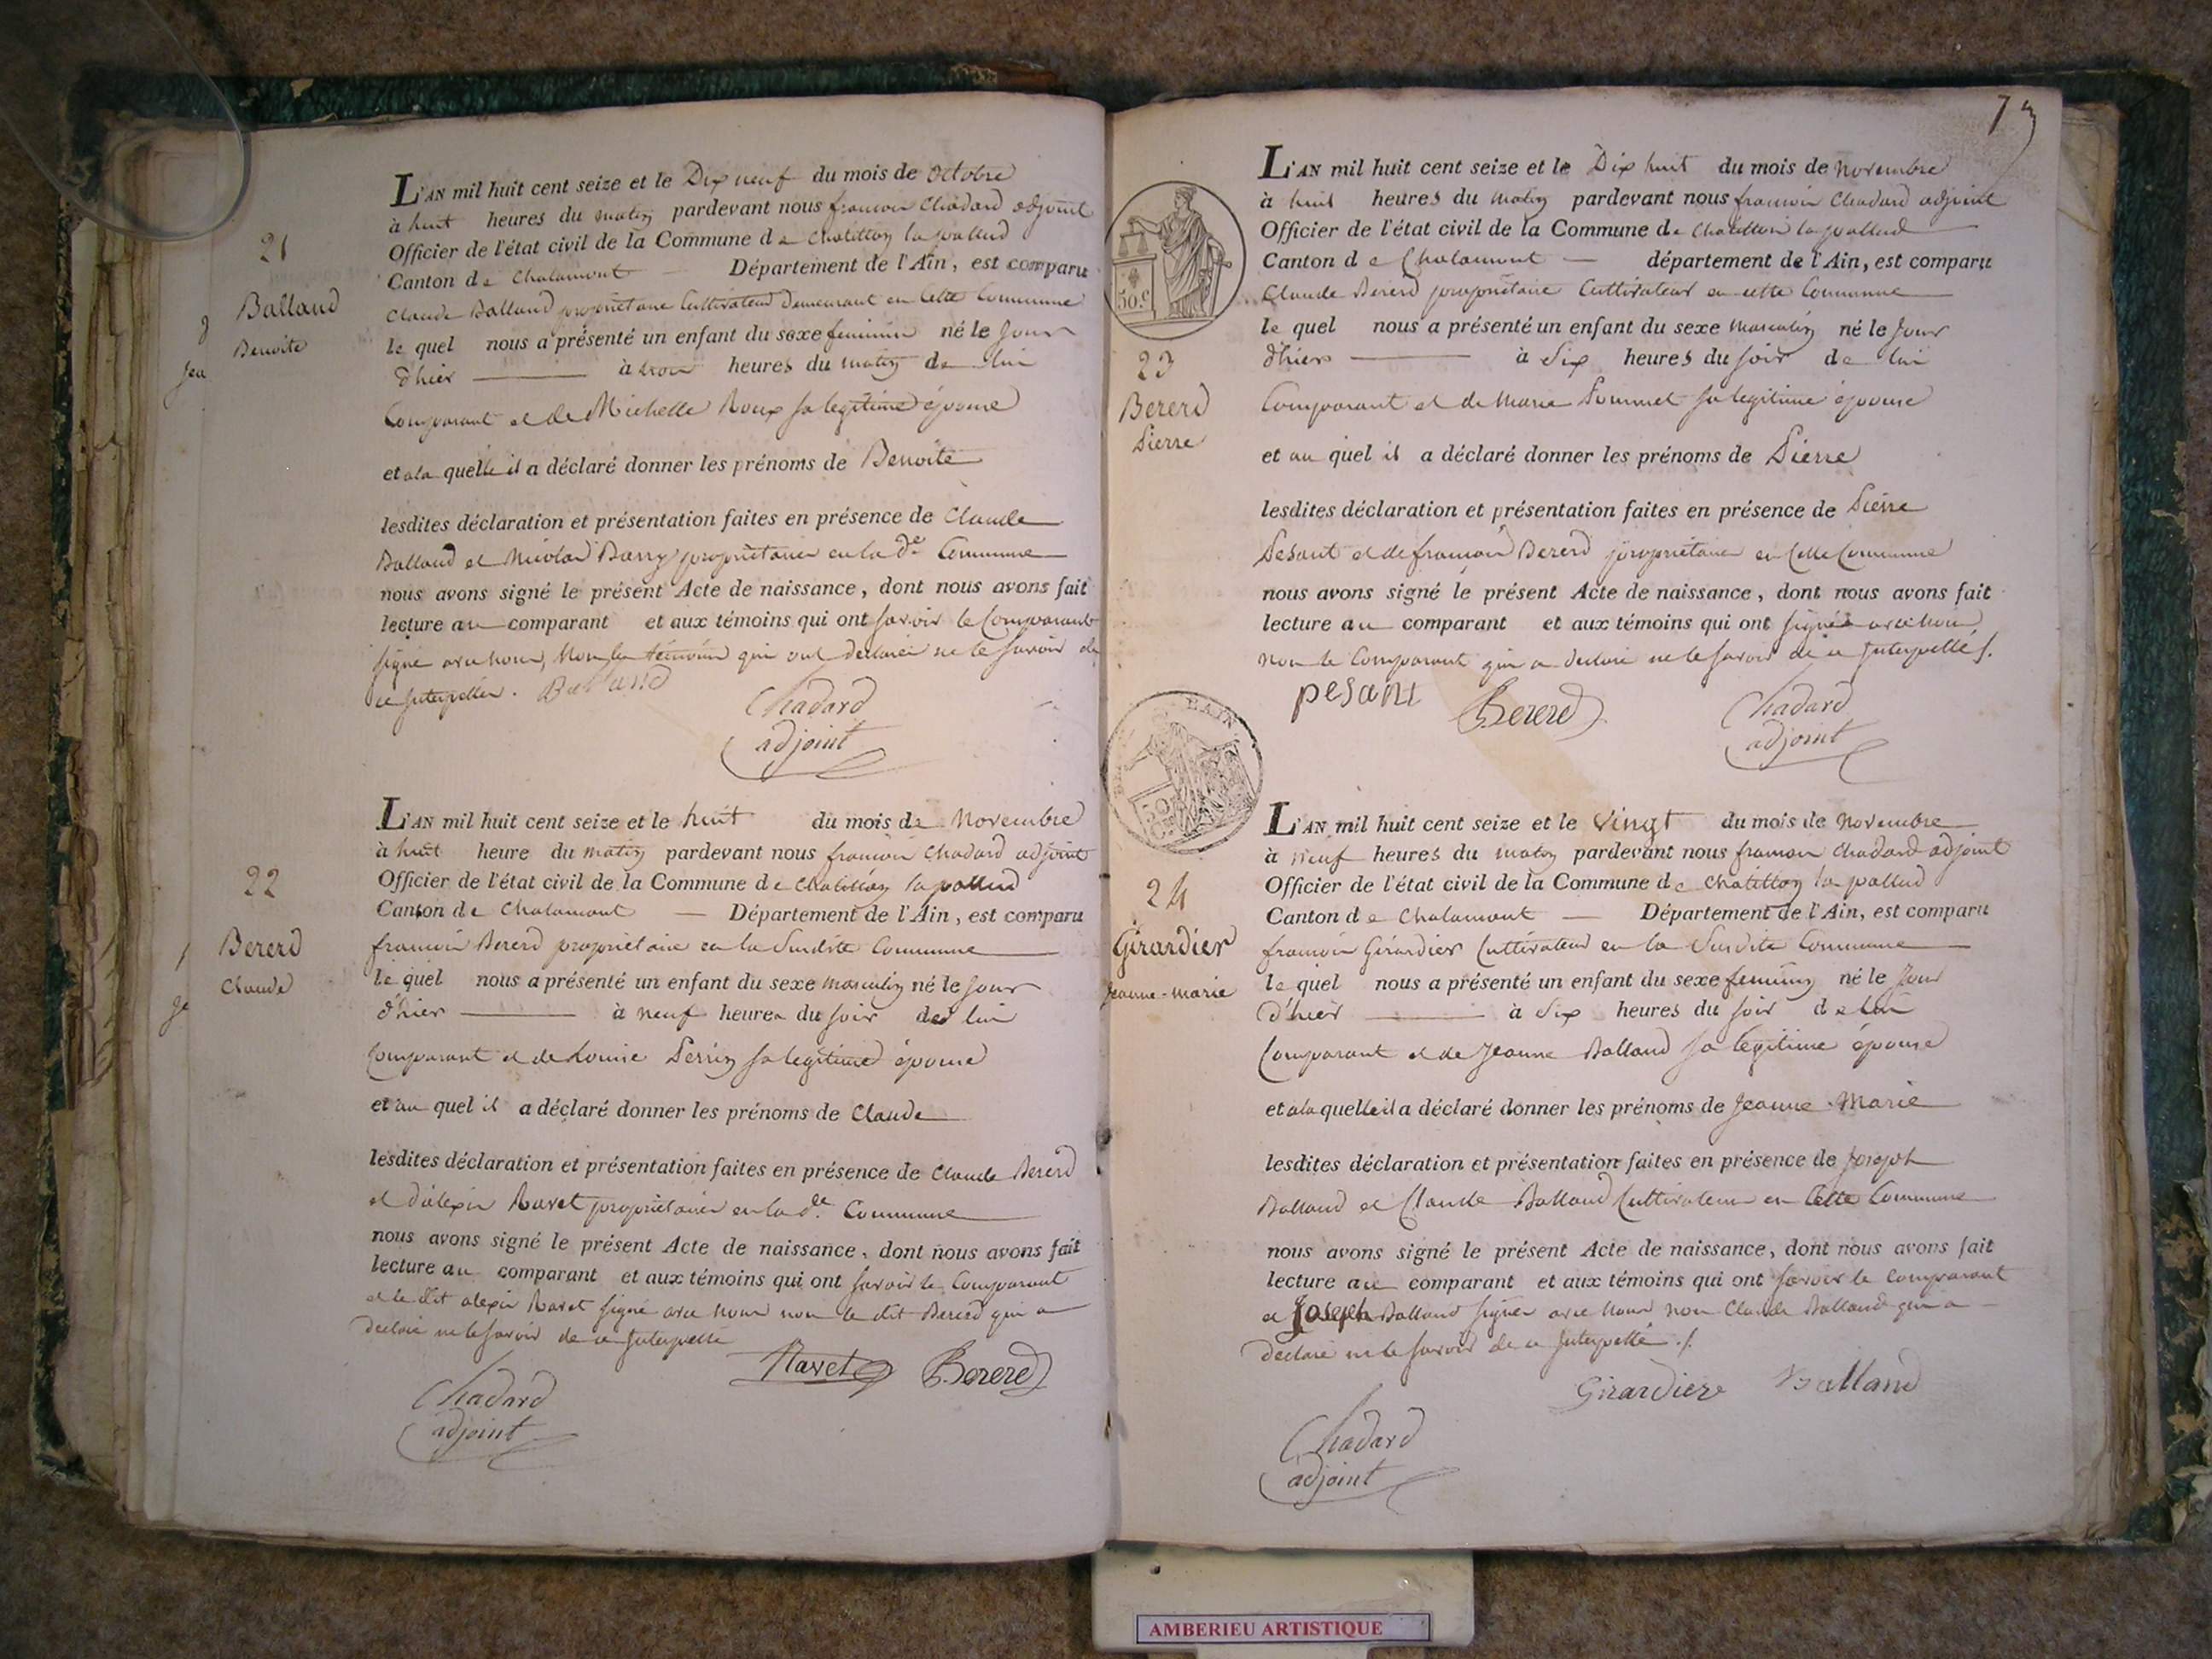 21
Balland
Benoite
L'AN mil huit cent seize et le Dix neuf du mois de Octobre
à huit heures du matin pardevant nous francois Chadard adjoint
Officier de l'état civil de la Commune de Chatillon la pallud
Canton de Chalamont — Département de l'Ain, est comparu
Claude Balland propriétaire Cultivateur demeurant en Cette Commune
le quel nous a présenté un enfant du sexe feminin né le Jour
d'hier — à trois heures du matin de lui
Comparant et de Michelle Roux sa legitime épouse
et a la quelle il a déclaré donner les prénoms de Benoite
lesdites déclaration et présentation faites en présence de Claude
Balland et Nicolas Barry propriétaires en la de Commune
nous avons signé le présent Acte de naissance, dont nous avons fait
lecture au comparant et aux témoins qui ont savoir le Comparant
signé avec nous, Non les témoins qui ont déclaré ne le savoir de
ce Interpellés. Balland
Chadard
adjoint
22
Bererd
Claude
L'AN mil huit cent seize et le huit du mois de Novembre
à huit heure du matin pardevant nous francois Chadard adjoint
Officier de l'état civil de la Commune de Chatillon la pallud
Canton de Chalamont — Département de l'Ain, est comparu
francois Bererd propriétaire en la Susdite Commune
le quel nous a présenté un enfant du sexe masculin né le jour
d'hier — à neuf heures du soir de lui
Comparant et de Louise Perrin sa legitime épouse
et au quel il a déclaré donner les prénoms de Claude
lesdites déclaration et présentation faites en présence de Claude Bererd
et d'alexis Ravet propriétaires en la de Commune
nous avons signé le présent Acte de naissance, dont nous avons fait
lecture au comparant et aux témoins qui ont savoir le Comparant
et le dit alexis Ravet signé avec nous non le dit Bererd qui a
déclaré ne le savoir de ce Interpellé
Ravet Bererd
Chadard
adjoint
73
L'AN mil huit cent seize et le Dix huit du mois de novembre
à huit heures du matin pardevant nous francois Chadard adjoint
Officier de l'état civil de la Commune de Chatillon la pallud
Canton de Chalamont — département de l'Ain, est comparu
50.c
Claude Bererd propriétaire Cultivateur en cette Commune
le quel nous a présenté un enfant du sexe masculin né le Jour
23
d'hier — à Six heures du soir de lui
Bererd
Pierre
Comparant et de Marie Pommet sa legitime épouse
et au quel il a déclaré donner les prénoms de Pierre
lesdites déclaration et présentation faites en présence de Pierre
Pesant et de francois Bererd propriétaires en Cette Commune
nous avons signé le présent Acte de naissance, dont nous avons fait
lecture au comparant et aux témoins qui ont signés avec nous
non le Comparant qui a déclaré ne le savoir de ce Interpellé.
pesant Bererd Chadard
adjoint
L'AN mil huit cent seize et le vingt du mois de novembre
à neuf heures du matin pardevant nous francois Chadard adjoint
24
Officier de l'état civil de la Commune de Chatillon la pallud
Canton de Chalamont — Département de l'Ain, est comparu
Girardier
Jeanne-Marie
francois Girardier Cultivateur en la Susdite Commune
le quel nous a présenté un enfant du sexe feminin né le Jour
d'hier — à Six heures du soir de lui
Comparant et de Jeanne Balland sa legitime épouse
et a la quelle il a déclaré donner les prénoms de Jeanne-Marie
lesdites déclaration et présentation faites en présence de Joseph
Balland et Claude Balland Cultivateurs en Cette Commune
nous avons signé le présent Acte de naissance, dont nous avons fait
lecture au comparant et aux témoins qui ont savoir le Comparant
et Joseph Balland signés avec nous non Claude Balland qui a
déclaré ne le savoir de ce Interpellé.
Girardier Balland
Chadard
adjoint
AMBERIEU ARTISTIQUE